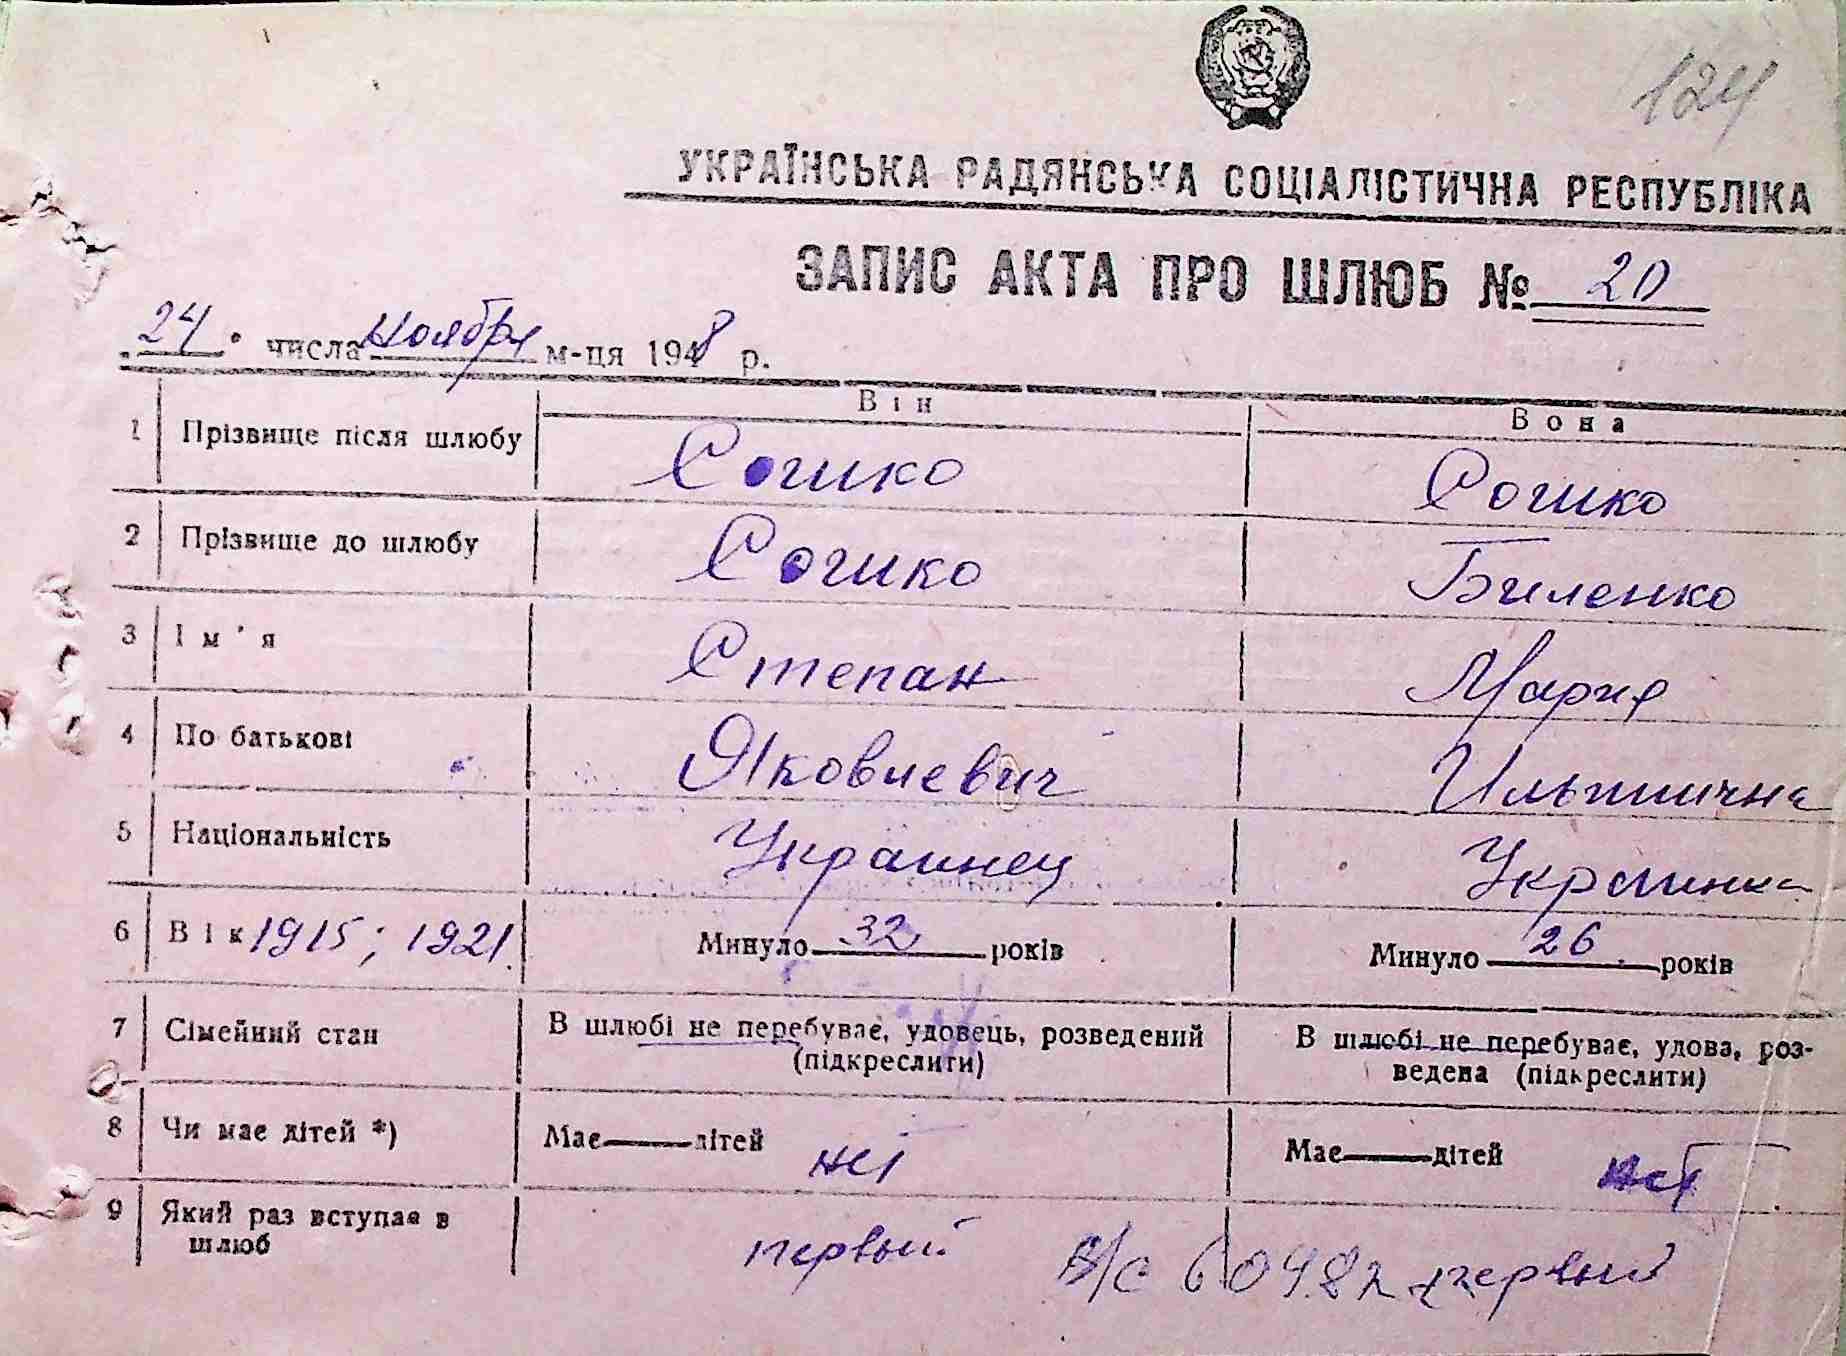 124
УКРАЇНСЬКА РАДЯНСЬКА СОЦІАЛІСТИЧНА РЕСПУБЛІКА
ЗАПИС АКТА ПРО ШЛЮБ № 20
24 числа Ноября м-ця 1948 р.
Він Вона
1 Прізвище після шлюбу Сошко Сошко
2 Прізвище до шлюбу Сошко Биленко
3 Ім'я Степан Мария
4 По батькові Яковлевич Ильинична
5 Національність Украинец Украинка
6 Вік 1915; 1921. Минуло 32 років Минуло 26 років
7 Сімейний стан В шлюбі не перебуває, удовець, розведений (підкреслити) В шлюбі не перебуває, удова, роз-
ведена (підкреслити)
8 Чи має дітей *) Має дітей нет Має дітей нет
9 Який раз вступає в шлюб первый первый